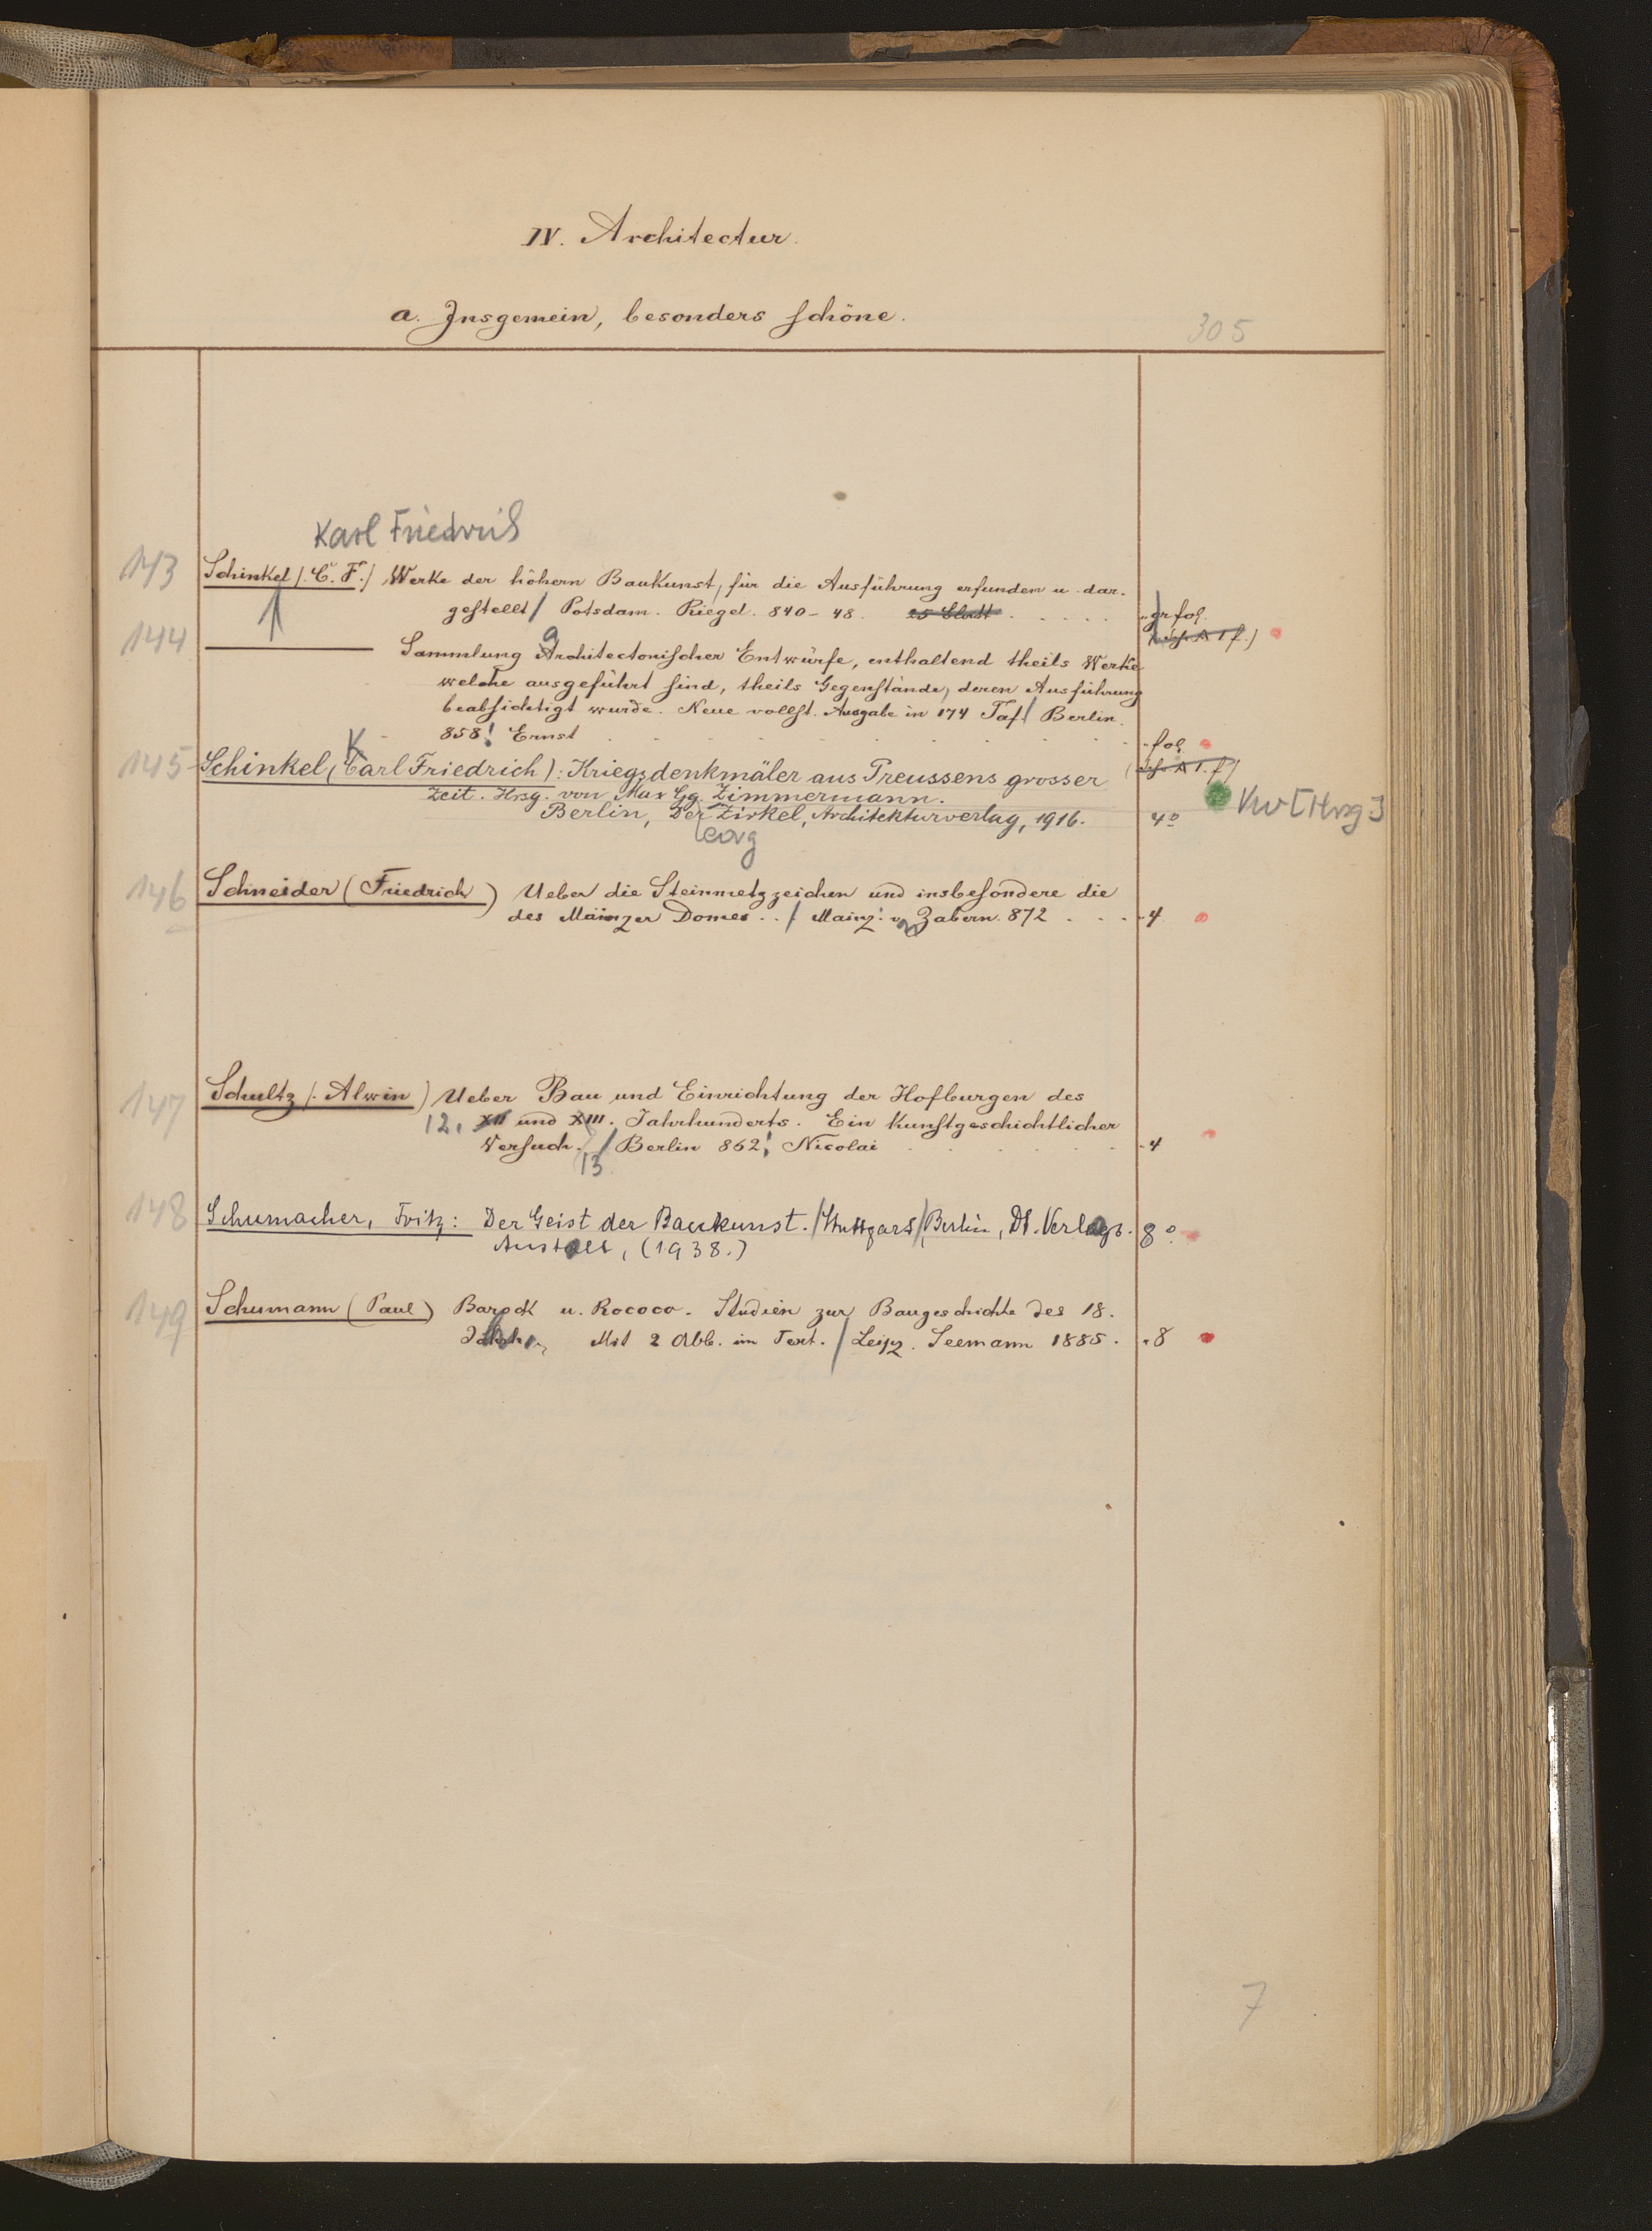 IV. Architectur.
a. Insgemein, besonders schöne.
305
Karl Friedrich
143 Schinkel (C. F.) Werke der höhern Baukunst, für die Ausführung erfunden u. dar-
gestellt / Potsdam. Riegel. 840-48. 25 Blatt . . . . . gr fol.
144 ——— Sammlung Architectonischer Entwürfe, enthaltend theils Werke
welche ausgeführt sind, theils Gegenstände, deren Ausführung
beabsichtigt wurde. Neue vollst. Ausgabe in 174 Taf / Berlin.
858. Ernst . . . . . . . fol.
K
145 Schinkel, (Carl Friedrich): Kriegsdenkmäler aus Preussens grosser
Zeit. Hrsg. von Max Gg. Zimmermann.
Berlin, Der Zirkel, Architekturverlag, 1916. 4° Kw [Hrsg]
eorg
146 Schneider (Friedrich) Ueber die Steinmetzzeichen und insbesondere die
des Mainzer Domes . . / Mainz: v. Zabern. 872 . . . 4
147 Schultz (Alwin) Ueber Bau und Einrichtung der Hofburgen des
12. XII und XIII. Jahrhunderts. Ein kunstgeschichtlicher
Versuch. / Berlin 862, Nicolai . . . . . . 4
13
148 Schumacher, Fritz: Der Geist der Baukunst. / Stuttgart, Berlin, Dt. Verlags- 8°
Anstalt, (1938.)
149 Schumann (Paul) Barock u. Rococo. Studien zur Baugeschichte des 18.
Mit 2 Abb. im Text. / Leipz. Seemann 1885. 8
7